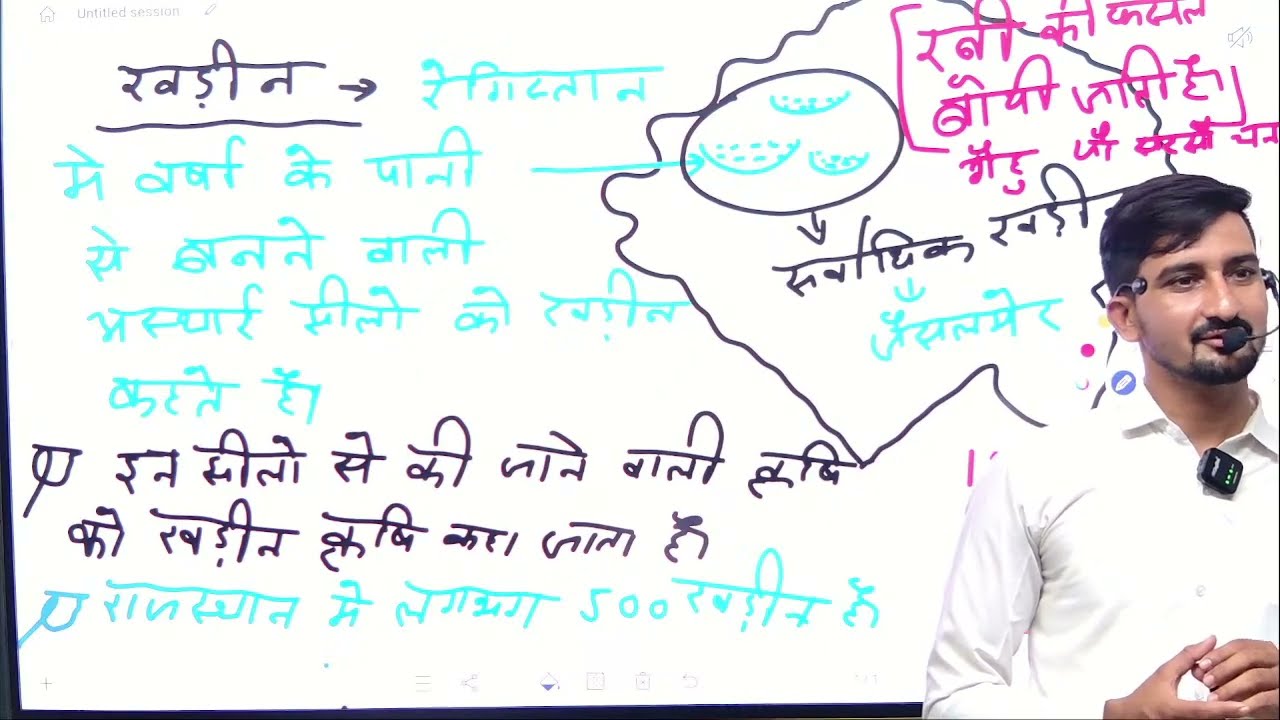 Untitled session
खड़ीन → रेगिस्तान
मे वर्षा के पानी
से बनने वाली
अस्थाई झीलो को खड़ीन
कहते है।
इन झीलो से की जाने वाली कृषि
को खड़ीन कृषि कहा जाता है।
राजस्थान मे लगभग 500 खड़ीन है
रबी की फसल
बोयी जाती है।
गेंहु जौ सरसों चना
सर्वाधिक खड़ीन
जैसलमेर
1/1